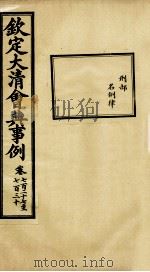 欽定大清會典事例
卷七百二十七至
七百三十
刑部
名例律